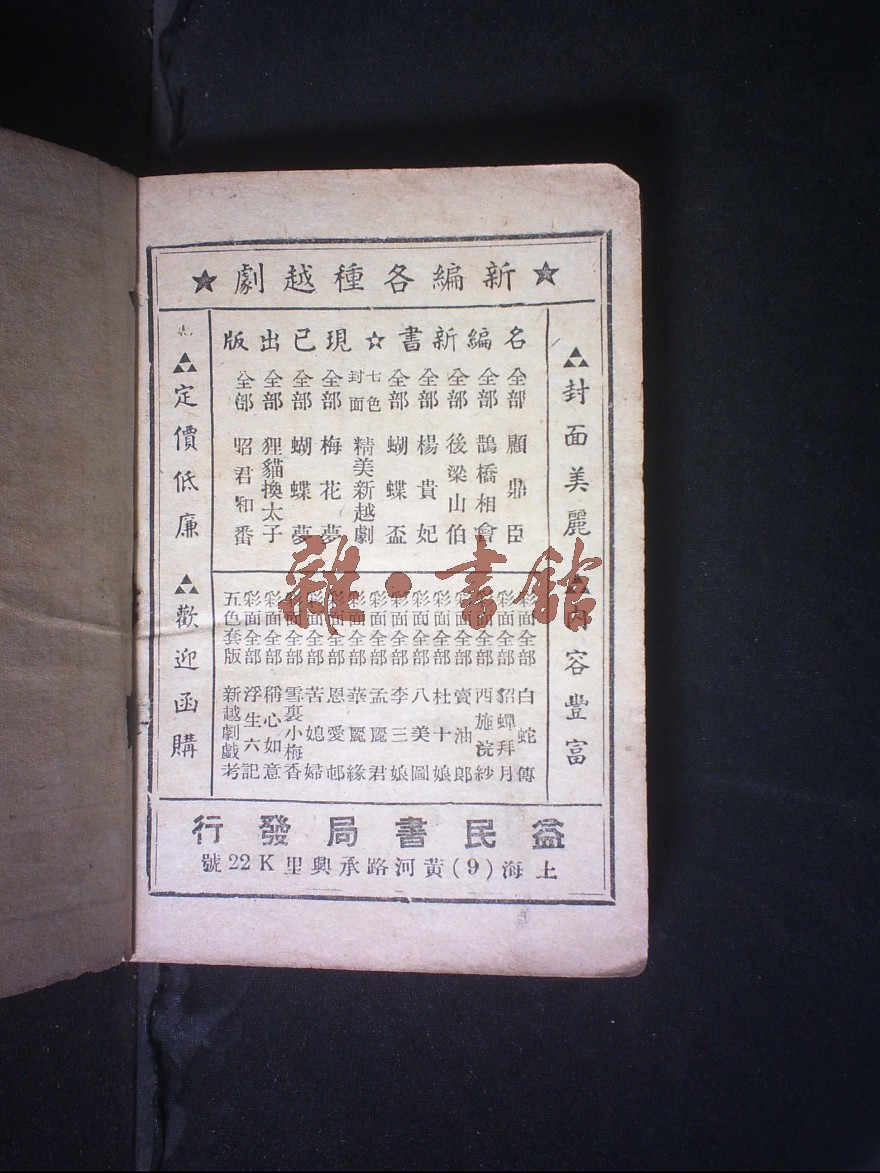 ★新編各種越劇★
封面美麗
內容豐富
名編新書☆現已出版
全部 顧鼎臣
全部 鵲橋相會
全部 後梁山伯
全部 楊貴妃
全部 蝴蝶盃
七色封面 精美新越劇
全部 梅花夢
全部 蝴蝶夢
全部 狸貓換太子
全部 昭君和番
彩面全部 白蛇傳
彩面全部 貂蟬拜月
彩面全部 西施浣紗
彩面全部 賣油郎
彩面全部 杜十娘
彩面全部 八美圖
彩面全部 李三娘
彩面全部 孟麗君
彩面全部 華麗緣
彩面全部 恩愛邨
彩面全部 苦媳婦
彩面全部 雪裏小梅香
彩面全部 稱心如意
彩面全部 浮生六記
五色套版 新越劇戲考
定價低廉
歡迎函購
益民書局發行
上海(9)黃河路承興里K22號
雜·書館